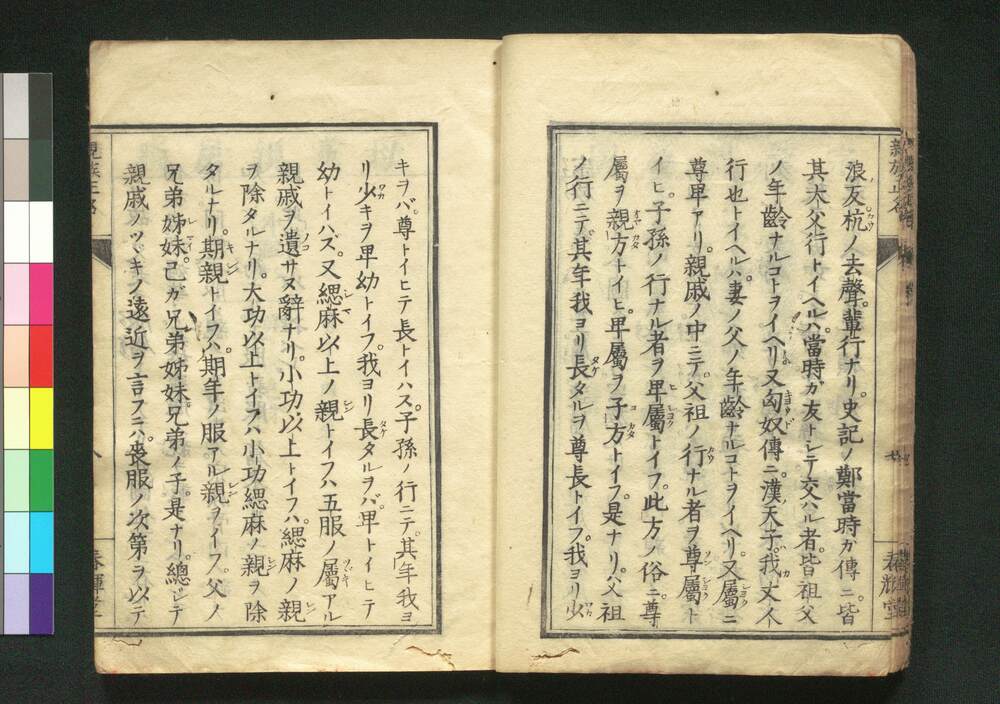 浪反杭ノ去聲。輩行ナリ。史記ノ鄭當時ガ傳ニ。皆
其大父行トイヘルハ。當時ガ友トシテ交ハル者。皆祖父
ノ年齡ナルコトヲイヘリ又匈奴傳ニ。漢天子。我丈人
行也トイヘルハ。妻ノ父ノ年齡ナルコトヲイヘリ。又屬ニ
尊卑アリ。親戚ノ中ニテ。父祖ノ行ナル者ヲ尊屬ト
イヒ。子孫ノ行ナル者ヲ卑屬トイフ。此方ノ俗ニ。尊
屬ヲ親方トイヒ。卑屬ヲ子方トイフ。是ナリ。父祖
ノ行ニテ。其年我ヨリ長タルヲ尊長トイフ。我ヨリ少
キヲバ。尊トイヒテ長トイハズ。子孫ノ行ニテ。其年我ヨ
リ少キヲ卑幼トイフ。我ヨリ長タルヲバ。卑トイヒテ
幼トイハズ。又緦麻以上ノ親トイフハ五服ノ屬アル
親戚ヲ遺サヌ辭ナリ。小功以上トイフハ。緦麻ノ親
ヲ除タルナリ。大功以上トイフハ小功緦麻ノ親ヲ除
タルナリ。期親トイフハ。期年ノ服アル親ヲイフ。父ノ
兄弟姊妹。己ガ兄弟姊妹。兄弟ノ子。是ナリ。總ジテ
親戚ノツヾキノ遠近ヲ言フニハ。喪服ノ次第ヲ以テ
親族正名
春輝堂